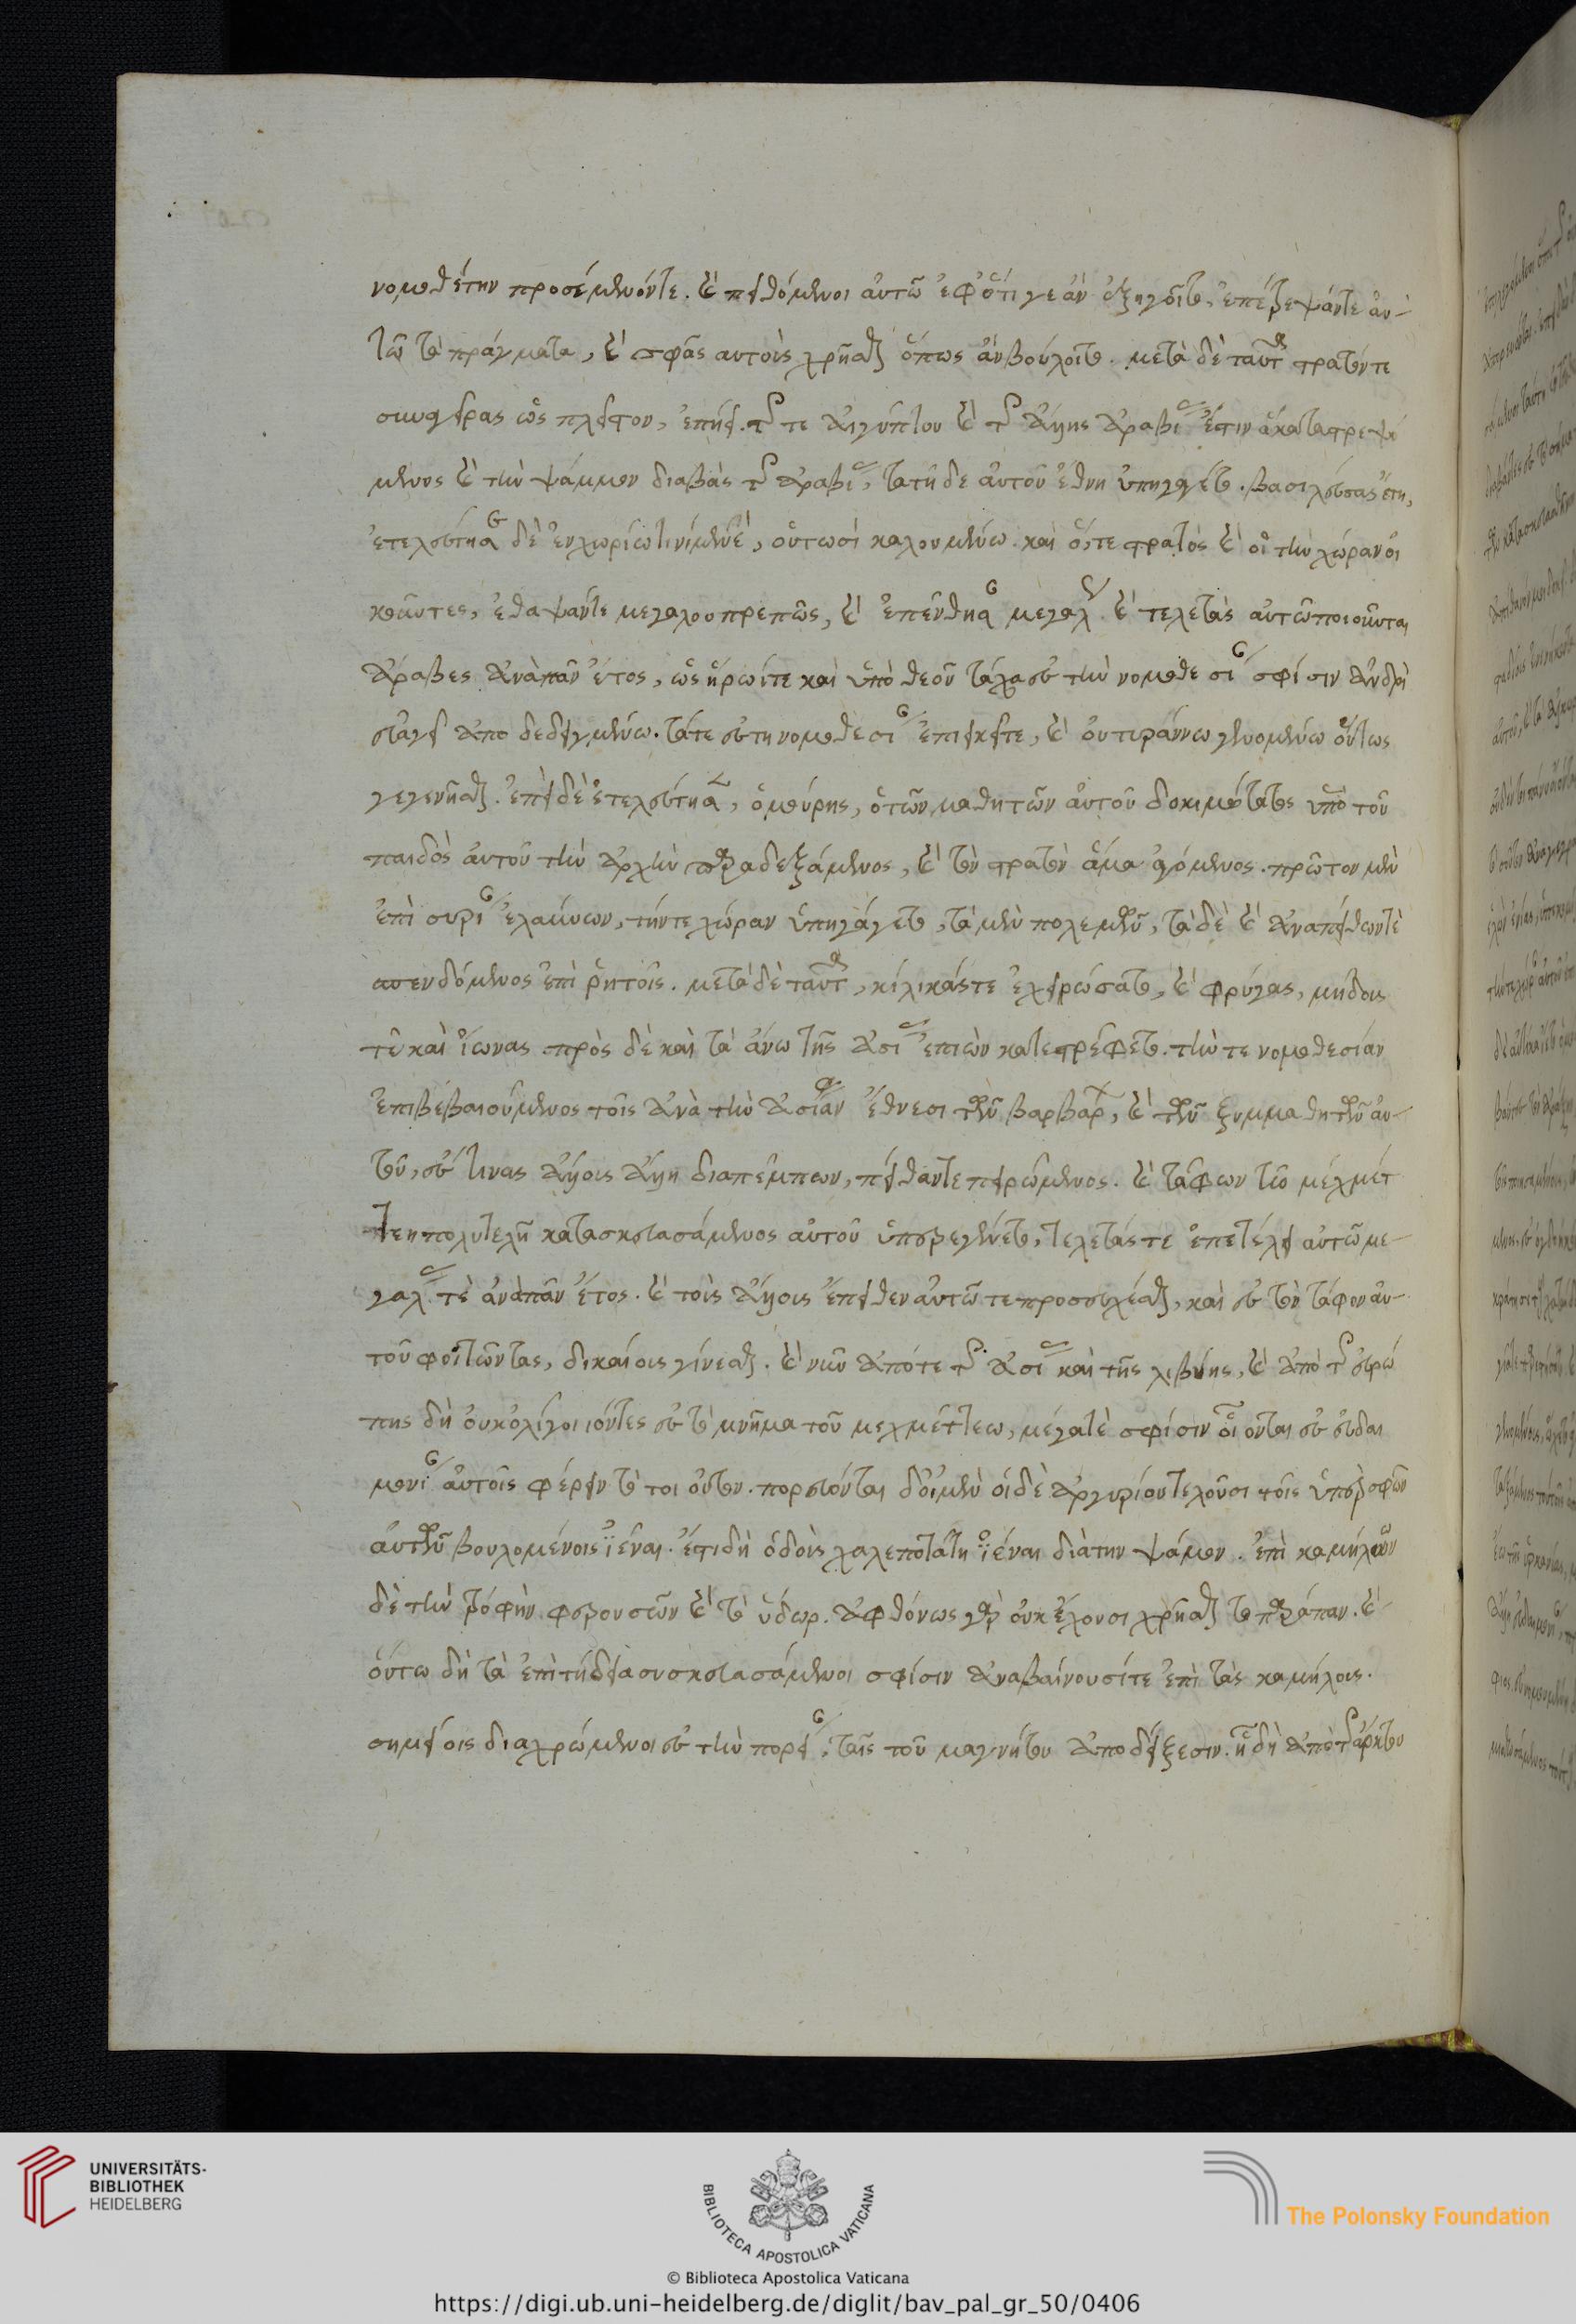 νομοθέτην προσέμενόντε. καὶ πειθόμενοι αὐτῶ ἐφ᾽ ὅτι γε ἂν ἐξηγοῖτο, ἐπέτρεψάντε αὐ-
τῶ τὰ πράγματα, καὶ σφᾶς αυτοὺς χρῆσθαι ὅπως ἂν βούλοιτο. μετὰ δὲ ταῦτα στρατόν τε
συναγείρας ὡς πλεῖστον, ἐπῄει τῆς τε Αἰγύπτου καὶ τῆς ἄλλης ἀραβίας ἔστιν ἃ καταστρεψά
μενος καὶ τὴν ψάμμον διαβὰς τῆς ἀραβίας, τα τῇδε αὐτοῦ ἔθνη ὑπηγάγετο. βασιλεύσας ἔτη,
ἐτελεύτησε δὲ ἐν χωρίω τινὶ μενὲ, οὑτωσί καλουμένω. καὶ ὅ,τε στρατὸς καὶ οἱ τὴν χώραν οἰ
κοῦντες, ἔθαψάντε μεγαλοπρεπῶς, καὶ ἐπένθησαν μεγάλως. καὶ τελετὰς αὐτῶ ποιοῦνται
ἄραβες ἀνὰ πᾶν ἔτος, ὡς ἥρωΐ τε καὶ ὑπὸ θεοῦ τάχα ἐς τὴν νομοθεσίαν σφίσιν ἀνδρὶ
εὐαγεῖ ἀποδεδειγμένω. τά τε ἐς τη νομοθεσίαν ἐπιεικεῖ τε, καὶ οὐ τυράννω γενομένω οὕτως
γεγενῆσθαι. ἐπεὶ δὲ ἐτελεύτησεν, ὁμούρης, ὁ τῶν μαθητῶν αὐτοῦ δοκιμώτατος ὑπὸ τοῦ
παιδὸς αὐτοῦ τὴν ἀρχὴν παραδεξάμενος, καὶ τὸν στρατὸν ἅμα ἀγόμενος. πρῶτον μὲν
ἐπὶ συρίαν ἐλαύνων, τήν τε χώραν ὑπηγάγετο, τὰ μὲν πολεμῶν, τὰ δὲ καὶ ἀναπείθων τὲ
σπενδόμενος ἐπὶ ῥητοῖς. μετὰ δὲ ταῦτα, κίλικάς τε ἐχειρώσατο, καὶ φρύγας, μήδους
τε καὶ ἴωνας πρὸς δὲ καὶ τὰ ἄνω τῆς ἀσίας ἐπιὼν κατεστρέφετο. τήν τε νομοθεσίαν
ἐπιβεβαιούμενος τοῖς ἀνὰ τὴν ἀσίαν ἔθνεσι τῶν βαρβάρων, καὶ τῶν ξυμμαθητῶν αὐ-
τοῦ, οὕς τινας ἄλλους ἄλλη διαπέμπων, πείθειν τε πειρώμενος. καὶ τάφον τῶ μεχμέτ
τεη πολυτελῆ κατασκευασάμενος αὐτοῦ ὑπερεγένετο, τελετάς τὲ ἐπετέλει αὐτῶ με-
γάλας τὲ ἀνὰ πᾶν ἔτος. καὶ τοὺς ἄλλους ἔπειθεν αὐτῶ τε προσεύχεσθαι, καὶ ἐς τὸν τάφον αὐ-
τοῦ φοιτῶντας, δικαίους γίνεσθαι. καὶ νῦν ἀπό τε τῆς ἀσίας καὶ τῆς λιβύης, καὶ ἀπὸ τῆς εὐρώ
πης δὴ οὐκ ὀλίγοι ἰόντες ἐς τὸ μνῆμα τοῦ μεχμέττεω, μέγα τὲ σφίσιν οἴονται ἐς εὐδαι
μονίαν αὐτοῖς φέρειν τό τοι οὗτον. πορεύονται δ᾽ οἱ μὲν οἱ δὲ ἀργύριον τελοῦσι τοῖς ὑπὲρ σφῶν
αὐτῶν βουλομένοις ἰέναι. ἔστι δὴ ὁδὸς χαλεπωτάτη ἰέναι διὰ την ψάμμον. ἐπὶ καμήλων
δὲ τὴν τροφὴν φερουσῶν καὶ τὸ ὕδωρ. ἀφθόνως γὰρ οὐκ ἔχουσι χρῆσθαι τὸ παράπαν. καὶ
οὕτω δὴ τὰ ἐπιτήδεια συσκευασάμενοι σφίσιν ἀναβαίνουσί τε ἐπὶ τὰς καμήλους.
σημείοις διαχρώμενοι ἐς τὴν πορείαν, ταῖς τοῦ μαγνήτου ἀποδείξεσιν. ᾗ δὴ ἀπὸ τῆς ἄρκτου
UNIVERSITÄTS-
BIBLIOTHEK
HEIDELBERG
BIBLIOTECA APOSTOLICA VATICANA
The Polonsky Foundation
© Biblioteca Apostolica Vaticana
https://digi.ub.uni-heidelberg.de/diglit/bav_pal_gr_50/0406